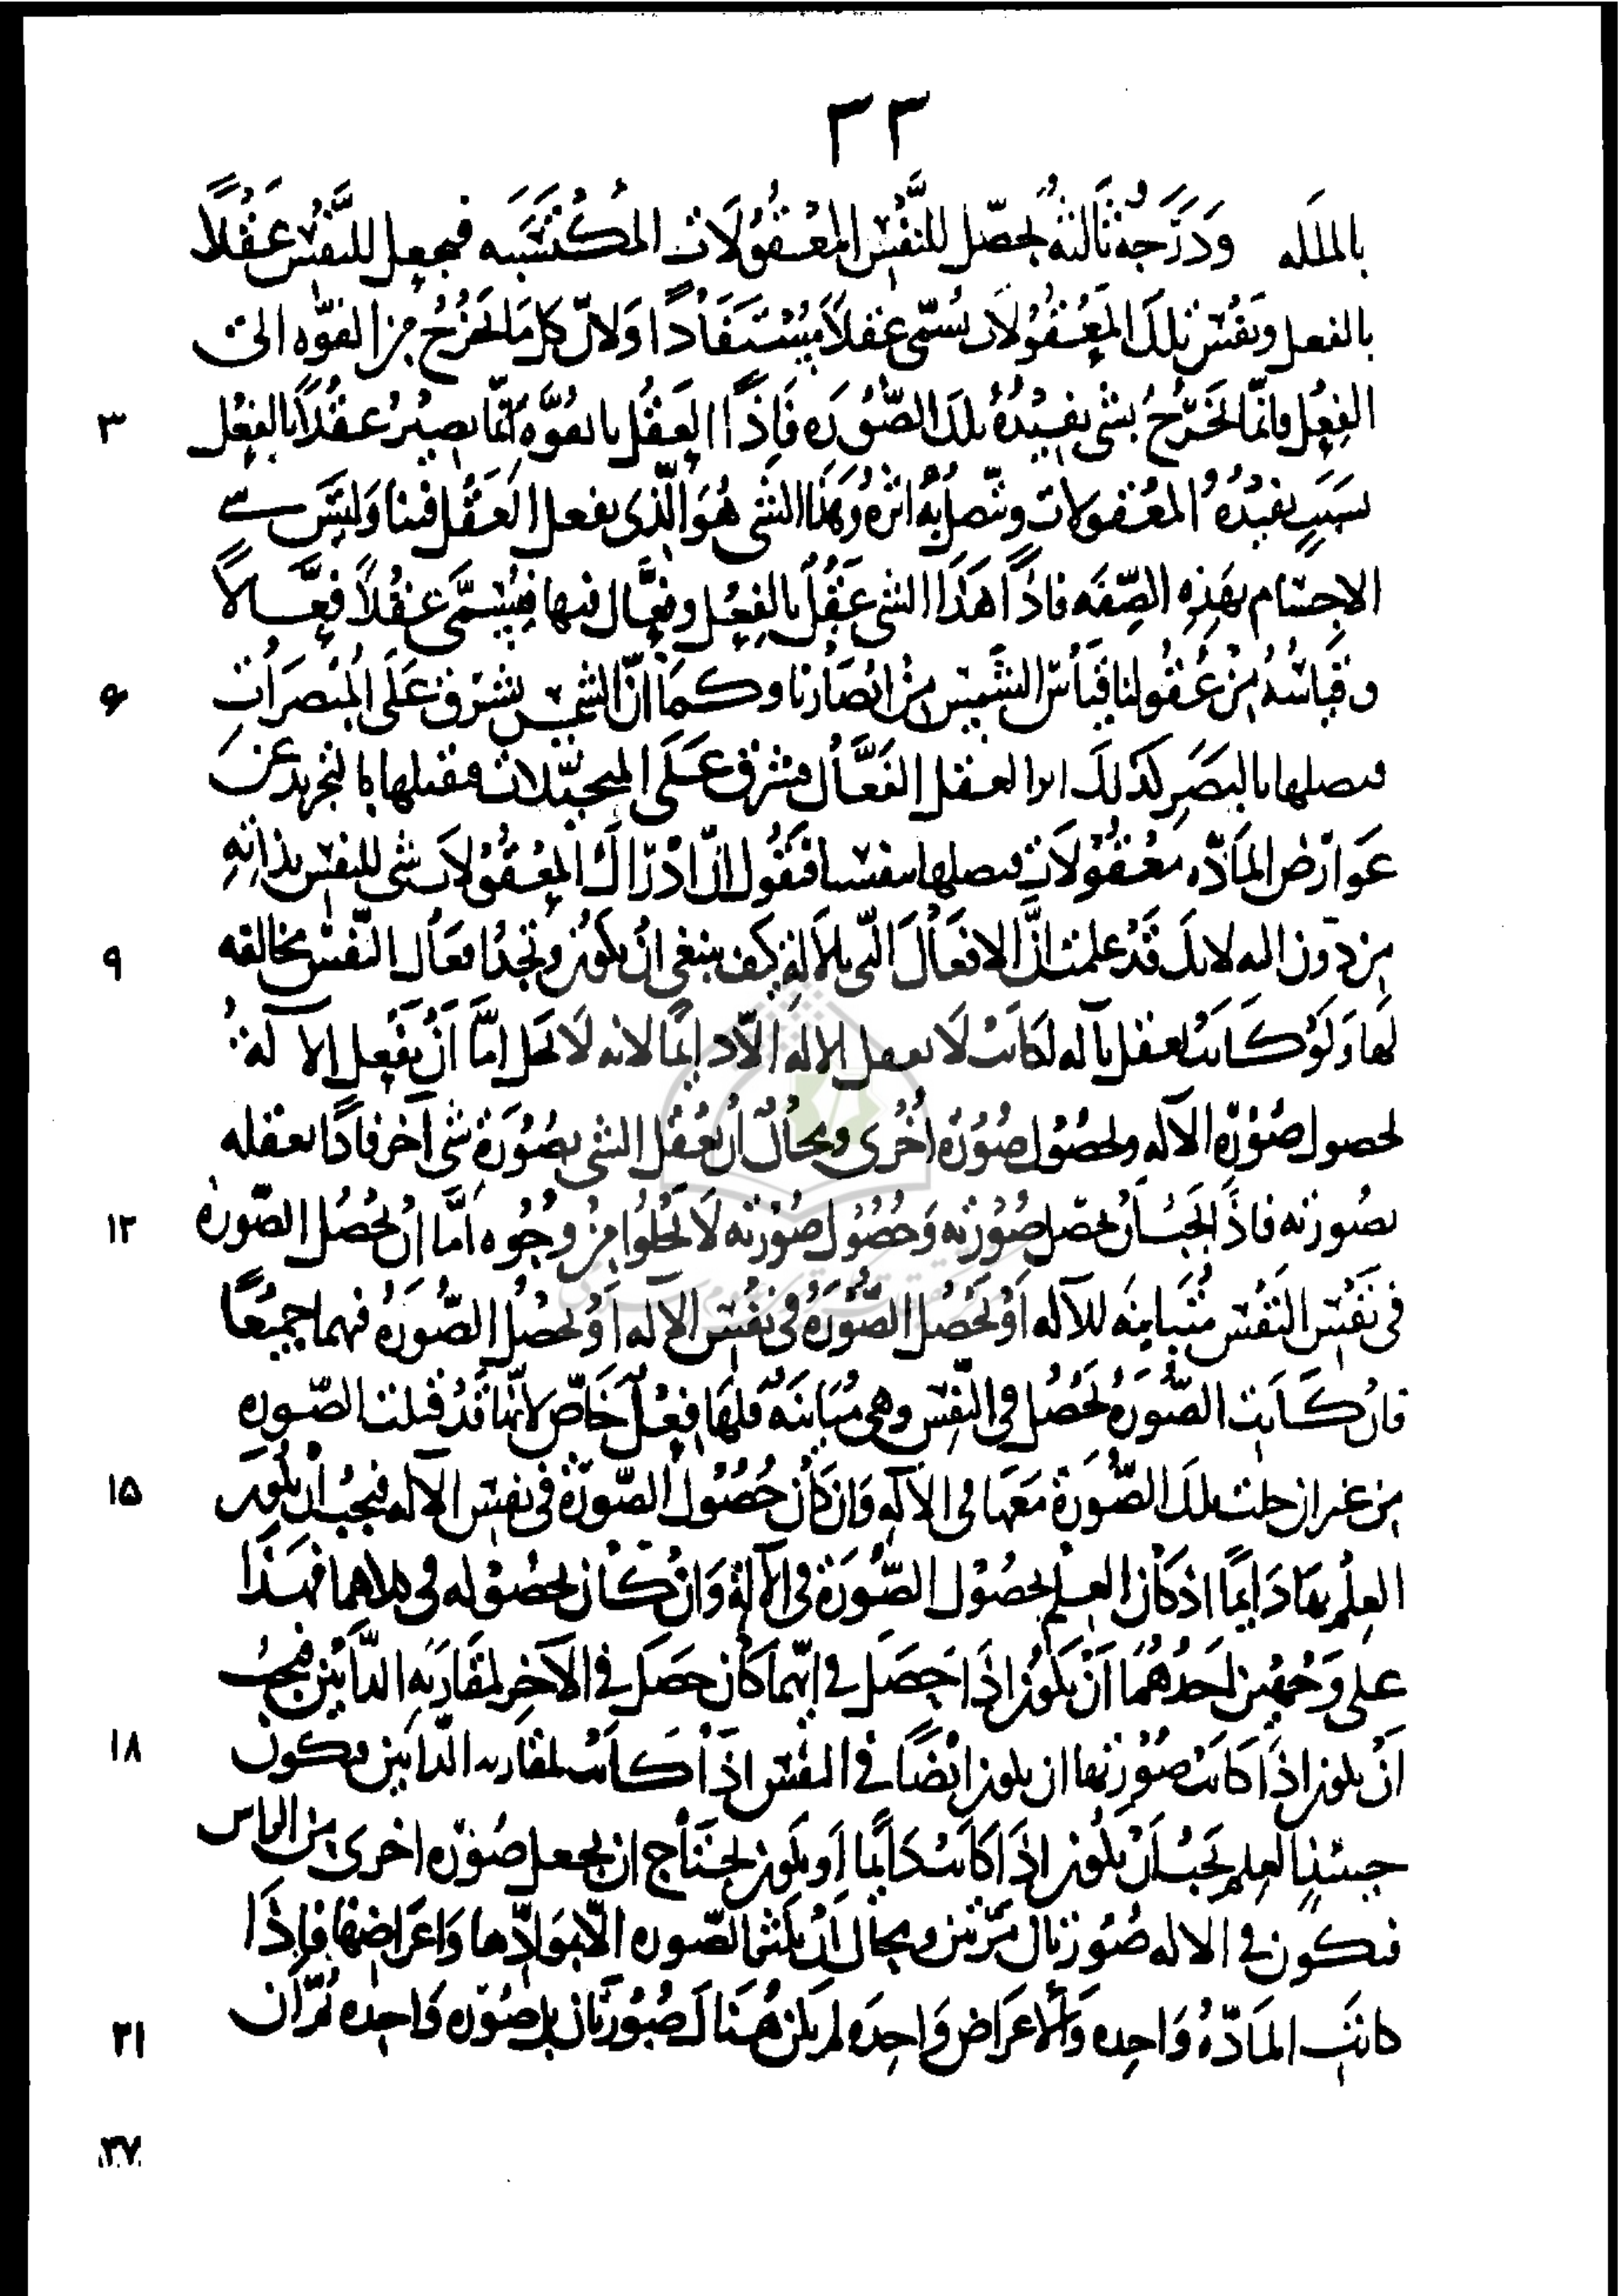 ٣٣
بالملكه ودرجه ثالثه تحصل للنفس المعقولات المكتسبه فيجعل للنفس عقلاً
بالفعل ونفس تلك المعقولات تسمى عقلاً مستفاداً ولان كل ما يخرج من القوه الى
٣ الفعل فانما يخرج بشى يفيده تلك الصوره فاذا العقل بالقوه انما يصير عقلاً بالفعل
بسبب يفيده المعقولات ويتصل به اثره وهذا الشى هو الذى يفعل العقل فينا وليس شے
الاجسام بهذه الصفه فاذاً هذا الشى عقل بالفعل وفعال فيها فيسمى عقلاً فعالاً
۶ وقياسه من عقولنا قياس الشمس من ابصارنا وكما ان الشمس تشرق على المبصرات
فيصلها بالبصر كذلك اثر العقل الفعال يشرق على المتخيلات فيقبلها بالتجريد عن
عوارض الماده معقولات فيصلها بنفسنا فنقول ان ادراك المعقولات شى للنفس بذاته
٩ من دون اله لانك قد علمت ان الافعال التى بلا اله كيف ينبغى ان يكون وتجد افعال النفس مخالفه
لها ولو كانت تعقل بآله لكانت لا تعقل الاله الا دايماً لانه لا تحل اما ان يفعل الآله
لحصول صورة الآله ولحصول صورة اخرى ومحال ان يعقل الشى بصورة شى آخر فاذاً تعقله
١٢ بصورته فاذاً يجب ان تحصل صورته وحصول صورته لا تخلوا من وجوه اما ان تحصل الصورة
فى نفس النفس متباينه للآله او تحصل الصورة فى نفس الاله او تحصل الصوره فيهما جميعاً
فان كانت الصورة تحصل فى النفس وهى مباينة فلها فعل خاص لانها قد قبلت الصوره
١۵ من غير ان حلت تلك الصورة معها فى الآله وان كان حصول الصورة فى نفس الآله فيجب ان يكون
العلم بها دايماً اذ كان العلم بحصول الصورة فى الآلة وان كان بحصوله فى كلاهما فهذا
على وجهين احدهما ان يكون اذا حصل فى ايهما كان حصل فى الآخر لمقاربه الذاتين فيجب
١٨ ان يكون اذا كانت صورتها ان يكون ايضاً فى النفس اذا كانت لمقاربه الذاتين فيكون
حينئذ العلم يجب ان يكون اذا كانت دايماً او يكون يحتاج ان يجعل صورة اخرى من الراس
فيكون فى الاله صورتان مرتين ومحال ان يكثر الصوره الا بموادها واعراضها فاذا
٢١ كانت الماده واحده والاعراض واحده لم يكن هناك صورتان بل صورة واحده ثم ان
٣٧